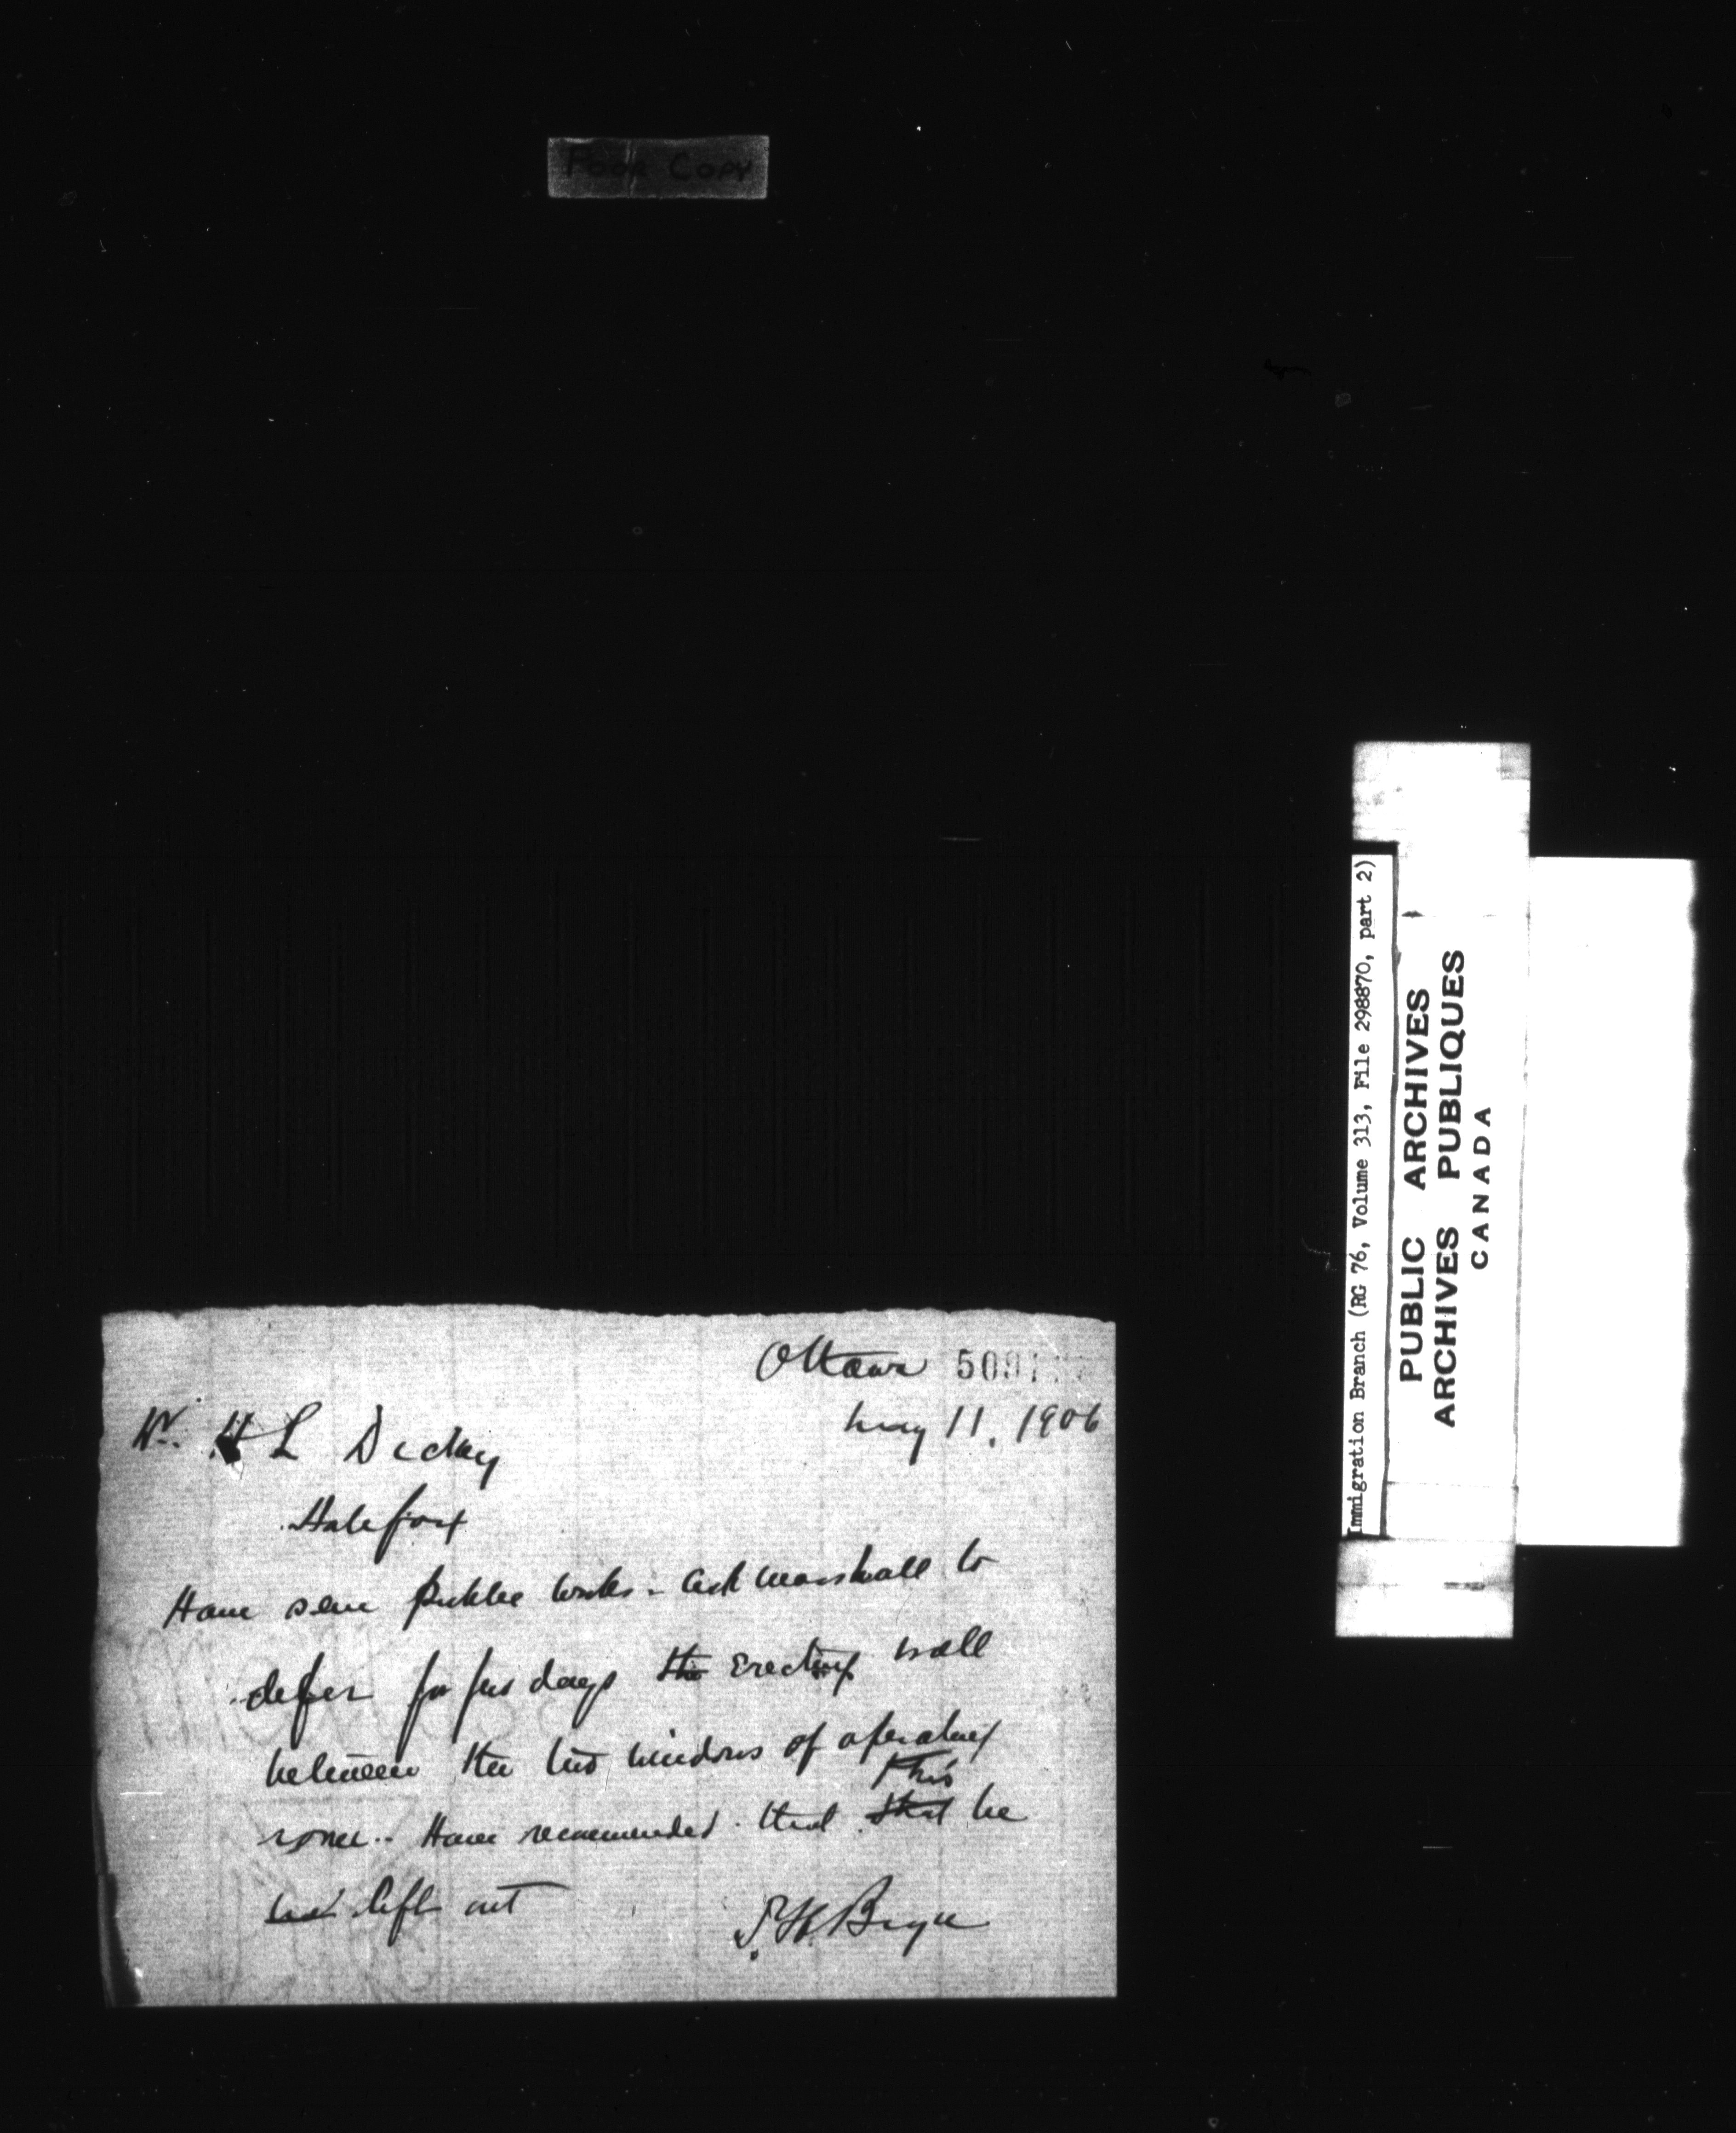 Poor Copy
Ottawa 509
May 11, 1906
Dr. H L Dickey
Halifax
Have seen Public Works - Ask Marshall to
defer for few days the erecting wall
between the two windows of operating
this
room. Have recommended that that be
left out
P. H. Bryce
Immigration Branch (RG 76, Volume 313, File 298870, part 2)
PUBLIC ARCHIVES
ARCHIVES PUBLIQUES
CANADA